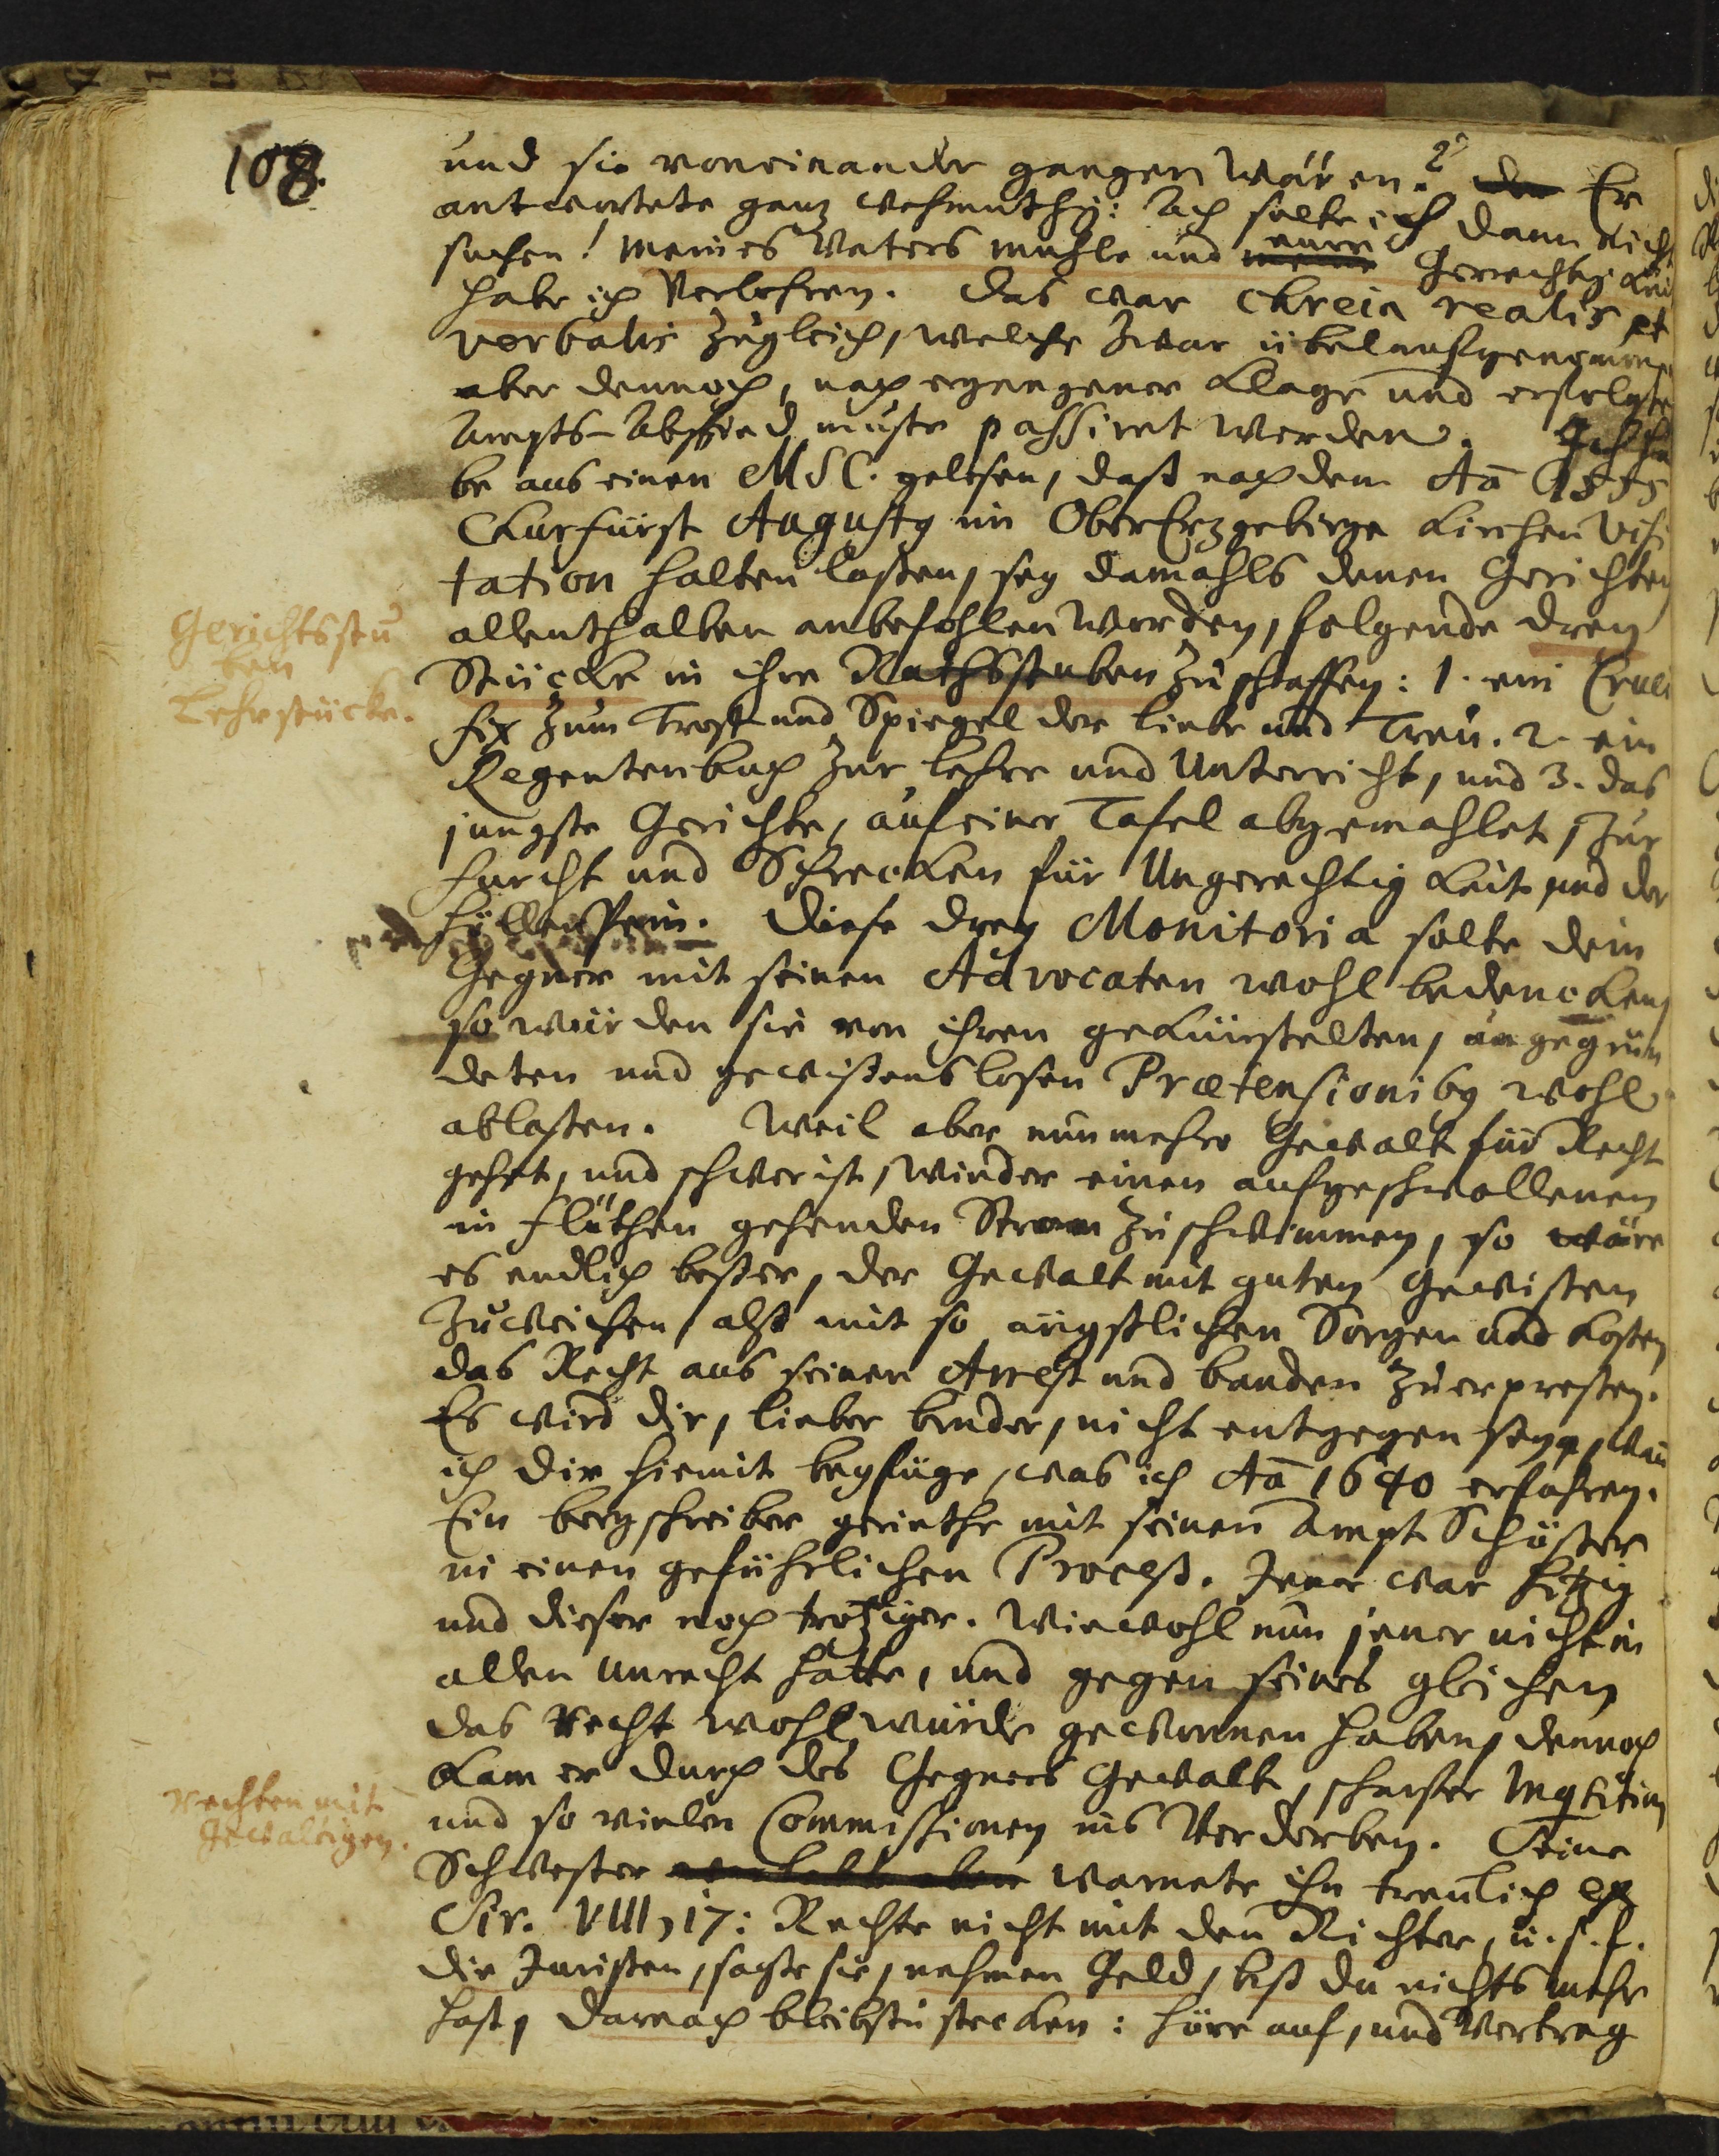 108.
und sie voneinander gangen wären? der Er
antwortete ganz wehmuthig: Ach solte ich dann nicht
suchen! meines Vaters muhle und meine eure Gerechtigkeit
habe ich verlohren. Das war Chreia realis et
verbalis zugleich, welche zwar übel aufgenommen
aber dennoch, nach ergangener Klage und erfolgte
Ampts-Abschied muste passiret werden. Ich ha
be aus einen MSC. gelesen, daß nachdem Aō 1555
Churfürst Augustg im OberErzgebirge Kirchen Visi
tation halten laßen, sey damahls denen Gerichten
allenthalben anbefohlen worden, folgende drey
Stücke in ihre Rathsstuben zu schaffen: 1. ein Cruci
fix zum Trost und Spiegel der Liebe und Treu. 2. ein
Regentenbuch zur Lehre und Unterricht, und 3. das
jungste Gerichte, auf einer Tafel abgemahlet, zur
Furcht und Schrecken für Ungerechtigkeit und der
Höllen Pein. Diese drey Monitoria solte dein
Gegner mit seinen Advocaten wohl bedencken,
so würden sie von ihren gekünstelten, ungegrün
deten und gewißenslosen Prætensionibg wohl
ablaßen. Weil aber nunmehro Gewalt für Recht
gehet, und schwer ist, wieder einen aufgeschwollenen
in Fluthen gehenden Strom zu schwimmen, so wäre
es endlich beßer, der Gewalt mit guten Gewißen
zu weichen, alß mit so ängstlichen Sorgen und Kosten
das Recht aus seinen Arrest und banden zu erpreßen.
Es wird dir, lieber bruder, nicht entgegen seyn, wan
ich dir hiemit beyfüge, was ich Aō 1640 erfahren.
Ein bergschreiber geriethe mit seinen Ampt Schößer
in einen gefährlichen Proceß. Jener war hitzig
und dieser noch trotziger. Wiewohl nun jener nicht in
allen unrecht hatte, und gegen seines gleichen
das Recht wohl würde gewonnen haben, dennoch
kam er durch des Gegners Gewalt, scharfer
und so vielen Commissionen ins Verderben. Seine
Schwester warnete ihn treulich ex
Sir. VIII, 17: Rechte nicht mit den Richter, u. s. f.
die Juristen, sagte sie, nehmen Geld, biß du nichts mehr
hast, darnach bleibstu stecken: höre auf, und Vertrag
Gerichtsstu
ben
Lehrstücke.
Rechten mit
Gewaltigen.